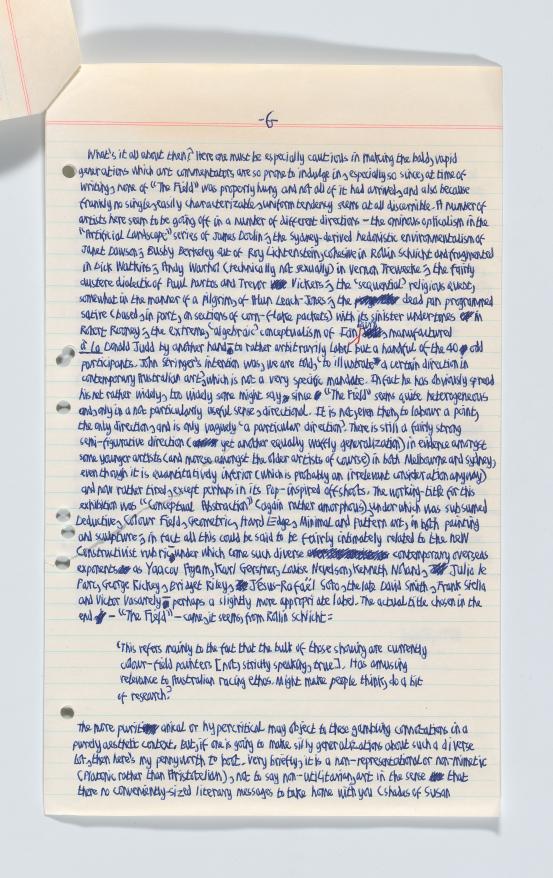 -6-
What's it all about then? Here one must be especially cautious in making the bald, vapid
generations which art commentators are so prone to indulge in, especially so since, at time of
writing, none of "The Field" was properly hung and not all of it had arrived, and also because
frankly no single, easily characterizable, uniform tendency seems at all discernible. A number of
artists here seem to going off in a number of different directions – the ominous opticalism in the
"Artificial Landscape" series of James Doolin, the Sydney-derived hedonistic environmentalism of
Janet Dawson, Busby Berkeley out of Roy Lichtenstein, cohesive in Rollin Schlicht and fragmented
in Dick Watkins, Andy Warhol (technically not sexually) in Vernon Treweeke, the fairly
austere dialectic of Paul Partos and Trevor Vickers, the "sequential" religious quest,
somewhat in the manner of a Pilgrim, of Alun Leach-Jones, the dead pan programmed
satire (based, in part, on sections of corn-flake packets) with its sinister undertones in
Robert Rooney, the extreme, "algebraic" conceptualism of Ian manufactured
à la Donald Judd by another hand – to rather arbitrarily label but a handful of the 40 odd
participants. John Stringer's intention was, we are told, "to illustrate a certain direction in
contemporary Australian art", which is not a very specific mandate. In fact he has obviously spread
his net rather widely, too widely some might say, since "The Field" seems quite heterogeneous
and, only in a not particularly useful sense, directional. It is not, even then, to labour a point,
the only direction, and is only vaguely "a particular direction". There is still a fairly strong
semi-figurative direction (yet another equally waffly generalization) in evidence amongst
some younger artists (and more amongst the older artists of course) in both Melbourne and Sydney,
even though it is quantitatively inferior (which is probably an irrelevant consideration anyway)
and now rather tired, except perhaps in its Pop-inspired offshoots. The working-title for this
exhibition was "Conceptual Abstraction" (again rather amorphous), under which was subsumed
Deductive, Colour Field, Geometric, Hard Edge, Minimal and Pattern art, in both painting
and sculpture, in fact all this could be said to be fairly intimately related to the new
Constructivist rubric, under which come such diverse contemporary overseas
exponents as Yaacov Agam, Karl Gerstner, Louise Nevelson, Kenneth Noland, Julio le
Parc, George Rickey, Bridget Riley, Jésus-Rafaël Soto, the late David Smith, Frank Stella
and Victor Vasarely – perhaps a slightly more appropriate label. The actual title chosen in the
end – "The Field" – came, it seems, from Rollin Schlicht:
'This refers mainly to the fact that the bulk of those showing are currently
colour-field painters [not, strictly speaking, true]. Has amusing
relevance to Australian racing ethos. Might make people think, do a bit
of research.'
The more puritanical or hypercritical may object to these gambling connotations in a
purely aesthetic context, but, if one is going to make silly generalizations about such a diverse
lot, then here's my pennyworth to boot. Very briefly, it is a non-representational or non-mimetic
(Platonic rather than Aristotelian), not to say non-utilitarian, art in the sense that
there no conveniently-sized literary messages to take home with you (shades of Susan